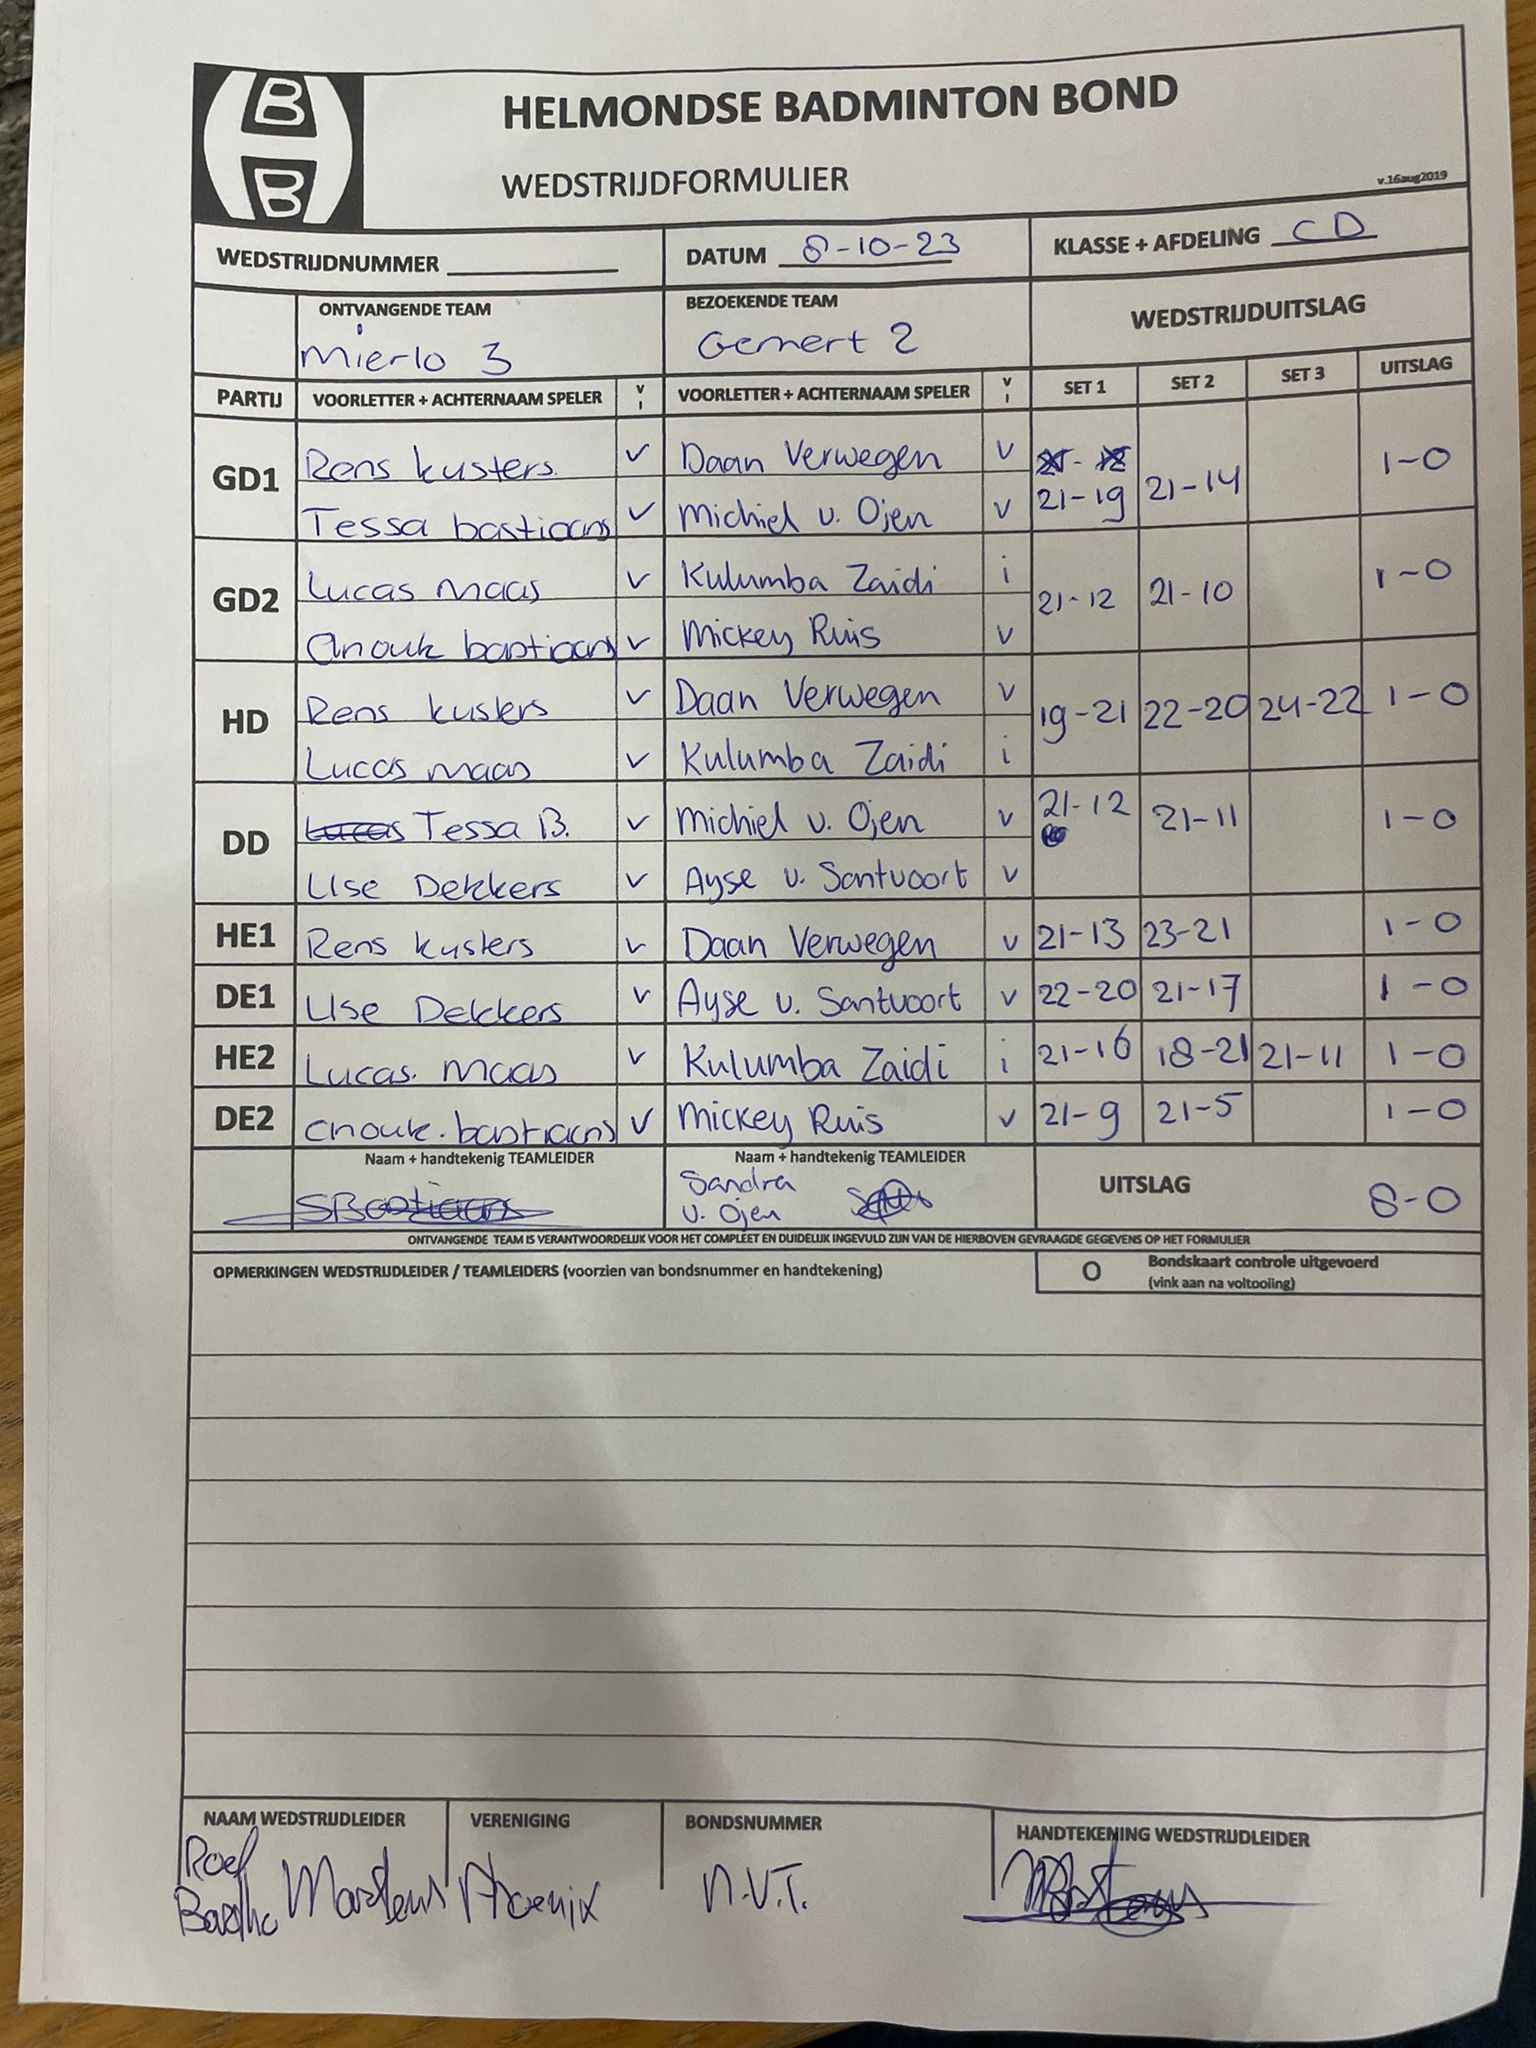 B
B
HELMONDSE BADMINTON BOND
WEDSTRIJDFORMULIER
v.16aug2019
WEDSTRIJDNUMMER DATUM 8-10-23 KLASSE + AFDELING CD
ONTVANGENDE TEAM BEZOEKENDE TEAM WEDSTRIJDUITSLAG
Mierlo 3 Gemert 2
PARTIJ VOORLETTER + ACHTERNAAM SPELER V I VOORLETTER + ACHTERNAAM SPELER V I SET 1 SET 2 SET 3 UITSLAG
GD1 Rens kusters. v Daan Verwegen v 21-19 21-14 1-0
Tessa bastiaans v Michiel v. Ojen v
GD2 Lucas maas v Kulumba Zaidi i 21-12 21-10 1-0
Anouk bastiaans v Mickey Ruis v
HD Rens kusters v Daan Verwegen v 19-21 22-20 24-22 1-0
Lucas maas v Kulumba Zaidi i
DD Lucas Tessa B. v Michiel v. Ojen v 21-12 21-11 1-0
Ilse Dekkers v Ayse v. Santvoort v
HE1 Rens kusters v Daan Verwegen v 21-13 23-21 1-0
DE1 Ilse Dekkers v Ayse v. Santvoort v 22-20 21-17 1-0
HE2 Lucas. maas v Kulumba Zaidi i 21-16 18-21 21-11 1-0
DE2 anouk. bastiaans v Mickey Ruis v 21-9 21-5 1-0
Naam + handtekenig TEAMLEIDER Naam + handtekenig TEAMLEIDER UITSLAG 8-0
SBastiaans Sandra
v. Ojen
ONTVANGENDE TEAM IS VERANTWOORDELIJK VOOR HET COMPLEET EN DUIDELIJK INGEVULD ZIJN VAN DE HIERBOVEN GEVRAAGDE GEGEVENS OP HET FORMULIER
OPMERKINGEN WEDSTRIJDLEIDER / TEAMLEIDERS (voorzien van bondsnummer en handtekening) O Bondskaart controle uitgevoerd
(vink aan na voltooiing)
NAAM WEDSTRIJDLEIDER VERENIGING BONDSNUMMER HANDTEKENING WEDSTRIJDLEIDER
Roef
Martens Phoenix N.V.T.